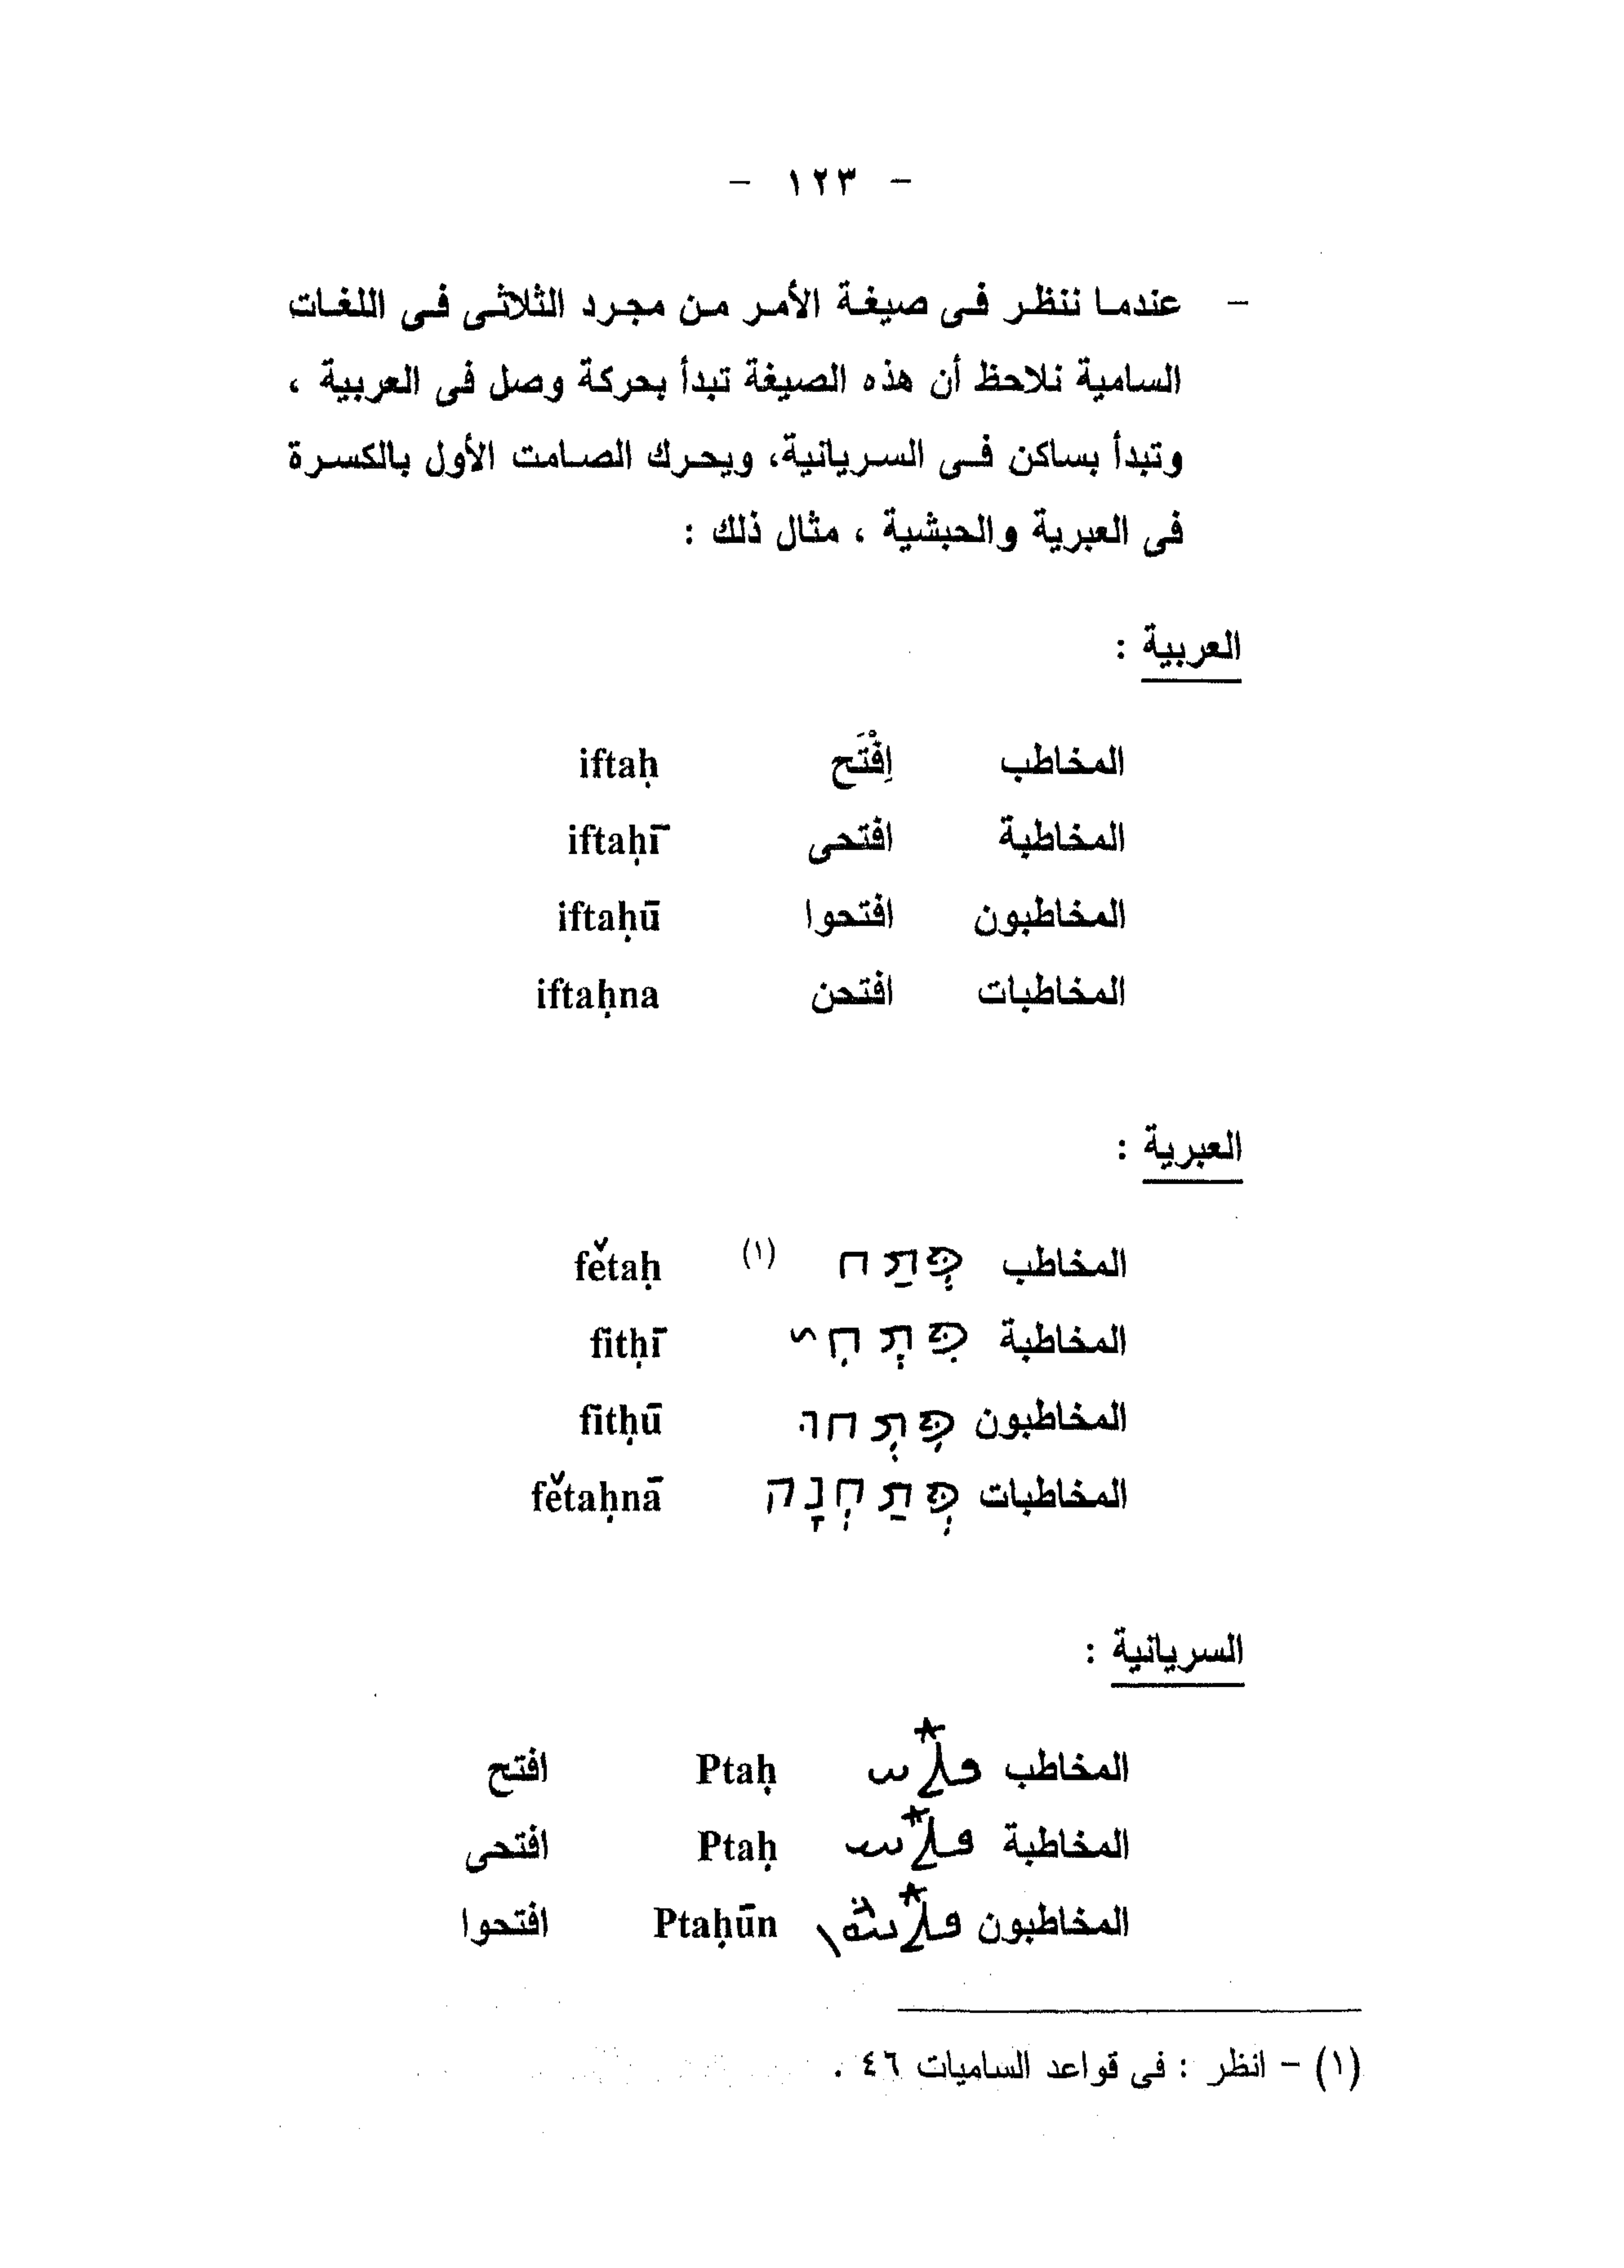 - ١٢٣ -
- عندما ننظر فى صيغة الأمر من مجرد الثلاثى فى اللغات
السامية نلاحظ أن هذه الصيغة تبدأ بحركة وصل فى العربية ،
وتبدأ بساكن فى السريانية، ويحرك الصامت الأول بالكسرة
فى العبرية والحبشية ، مثال ذلك :
العربية :
المخاطب اِفْتَح iftaḥ
المخاطبة افتحى iftaḥī
المخاطبون افتحوا iftaḥū
المخاطبات افتحن iftaḥna
العبرية :
المخاطب פְּתַח (١) fětaḥ
المخاطبة פִּתְחִי fitḥī
المخاطبون פִּתְחוּ fitḥū
المخاطبات פְּתַחְנָה fětaḥnā
السريانية :
المخاطب ܦܬܰܚ Ptaḥ افتح
المخاطبة ܦܬܰܚܝ Ptaḥ افتحى
المخاطبون Ptaḥūn افتحوا
(١) - انظر : فى قواعد الساميات ٤٦ .